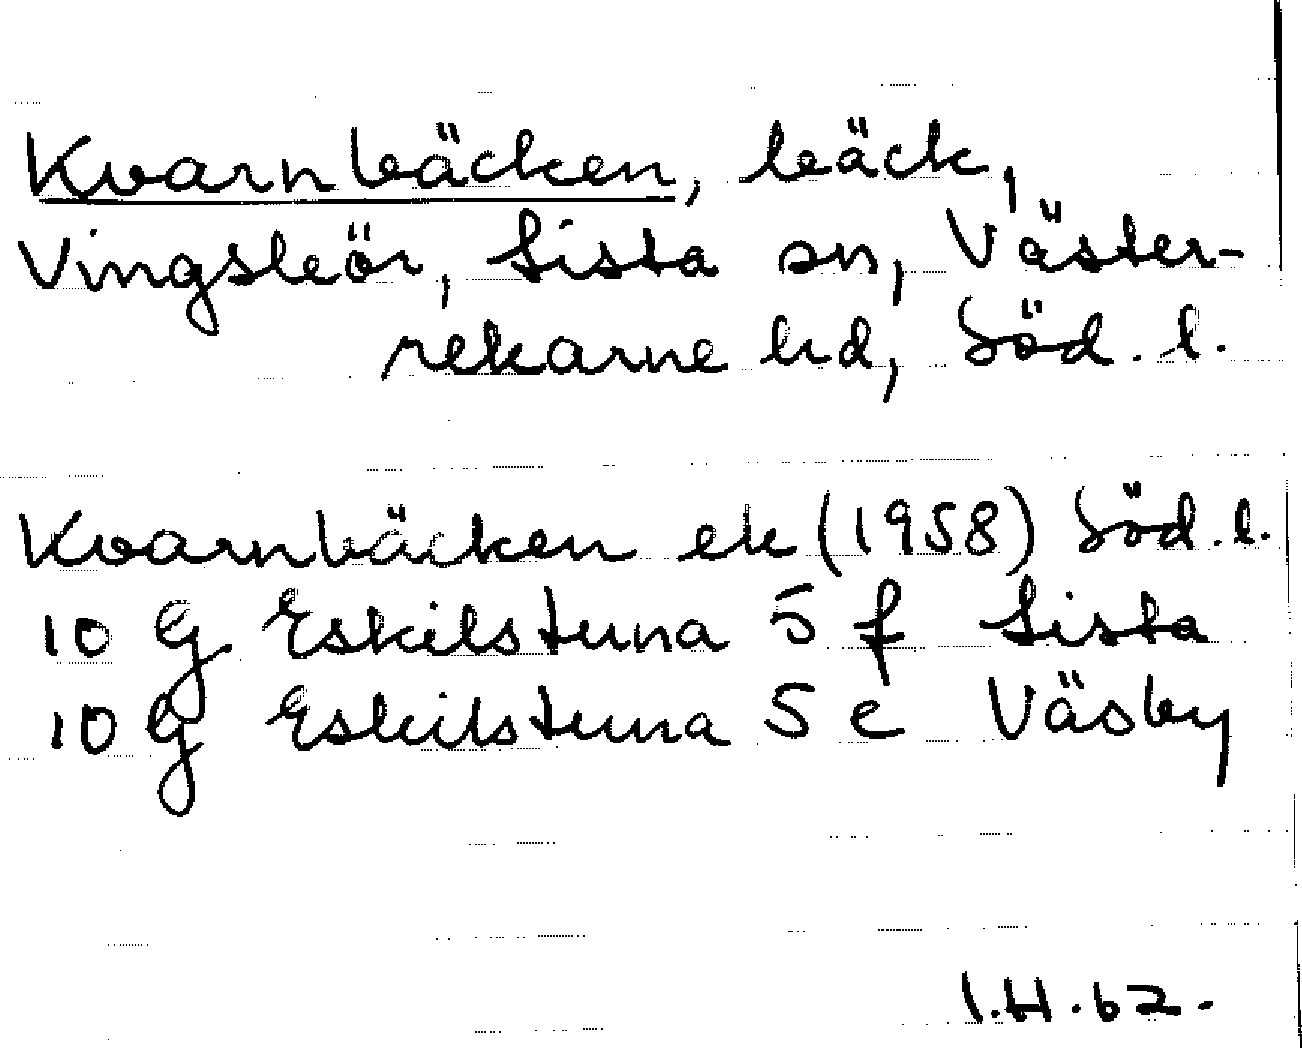 Kvarnbäcken, bäck,
Vingsleör, Lista sn, Väster-
rekarne hd, Söd. l.
Kvarnbäcken ek (1958) Söd. l.
10 G Eskilstuna 5 f Lista
10 G Eskilstuna 5 e Väsby
I.H.62.